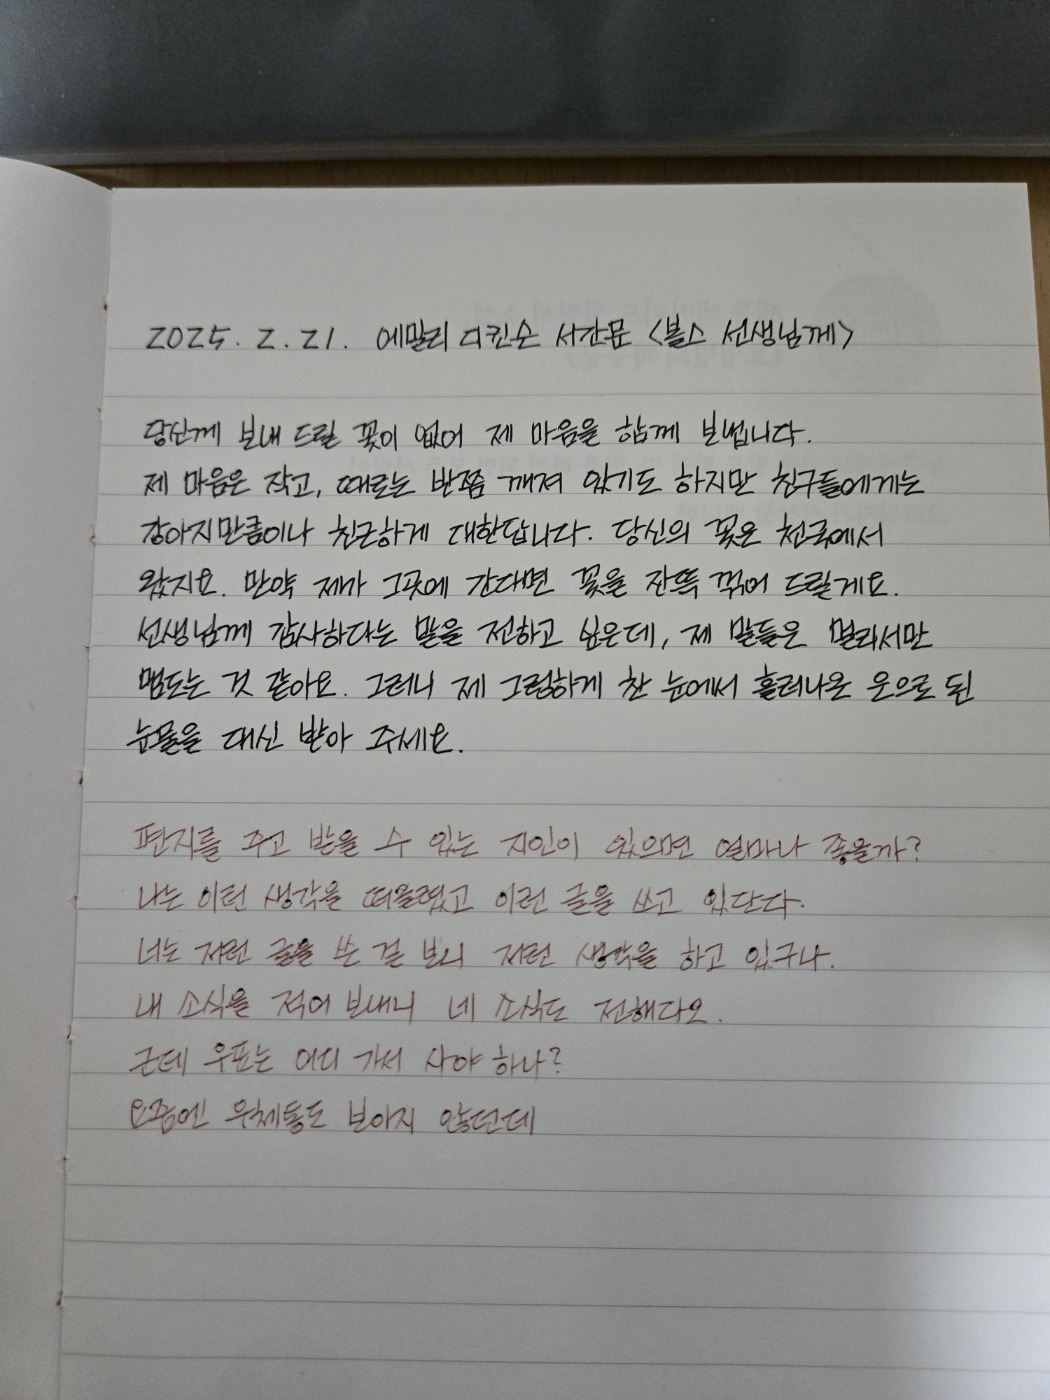 2025. 2. 21. 에밀리 디킨슨 서간문 <볼스 선생님께>
당신께 보내 드릴 꽃이 없어 제 마음을 함께 보냅니다.
제 마음은 작고, 때로는 반쯤 깨져 있기도 하지만 친구들에게는
강아지만큼이나 친근하게 대한답니다. 당신의 꽃은 천국에서
왔지요. 만약 제가 그곳에 간다면 꽃을 잔뜩 꺾어 드릴게요.
선생님께 감사하다는 말을 전하고 싶은데, 제 말들은 멀리서만
맴도는 것 같아요. 그러니 제 그렁하게 찬 눈에서 흘러나온 은으로 된
눈물을 대신 받아 주세요.
편지를 주고 받을 수 있는 지인이 있으면 얼마나 좋을까?
나는 이런 생각을 떠올렸고 이런 글을 쓰고 있단다.
너는 저런 글을 쓴 걸 보니 저런 생각을 하고 있구나.
내 소식을 적어 보내니 네 소식도 전해다오.
근데 우표는 어디 가서 사야 하나?
요즘엔 우체통도 보이지 않던데